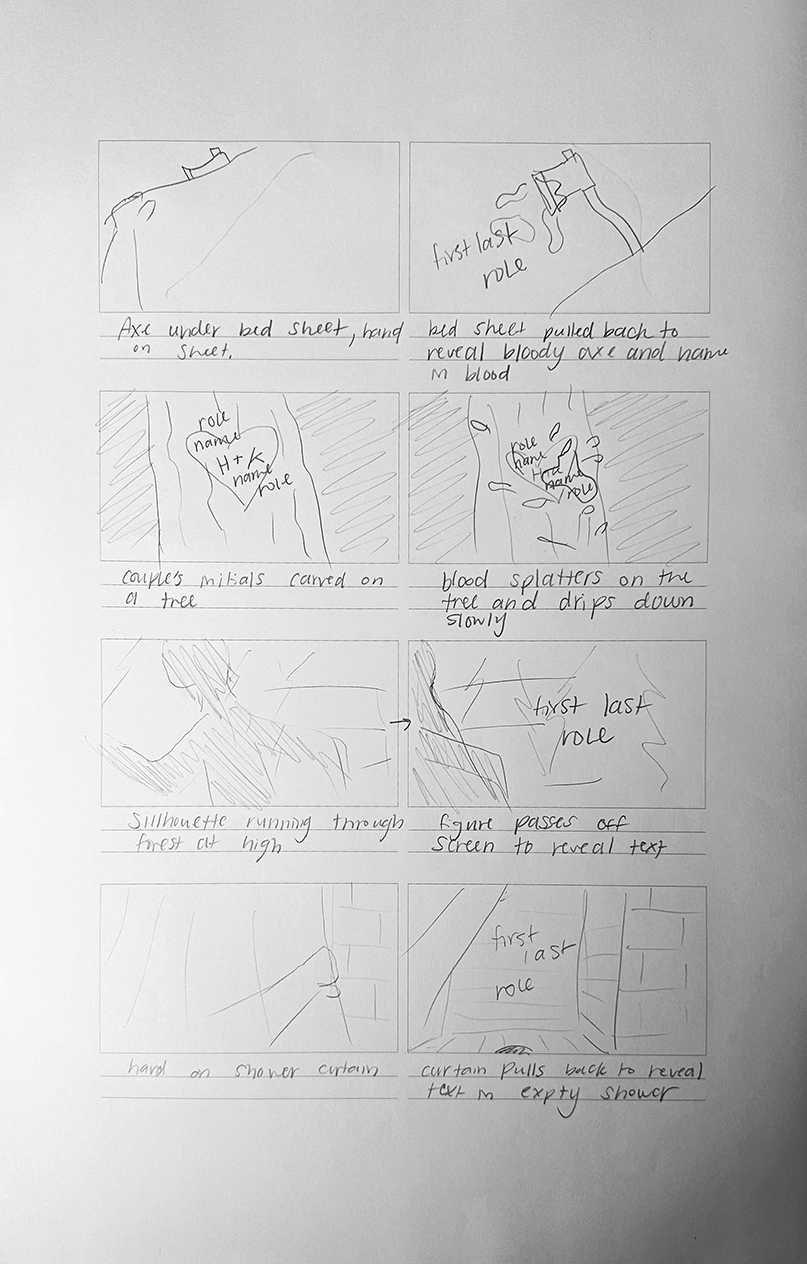 first last
role
Axe under bed sheet, hand
on sheet.
bed sheet pulled back to
reveal bloody axe and name
in blood
role
name
H + K
name
role
role
name
name
role
couple's initials carved on
a tree
blood splatters on the
tree and drips down
slowly
first last
role
Sillhouette running through
forest at high
figure passes off
screen to reveal text
first
last
role
hand on shower curtain
curtain pulls back to reveal
text in expty shower